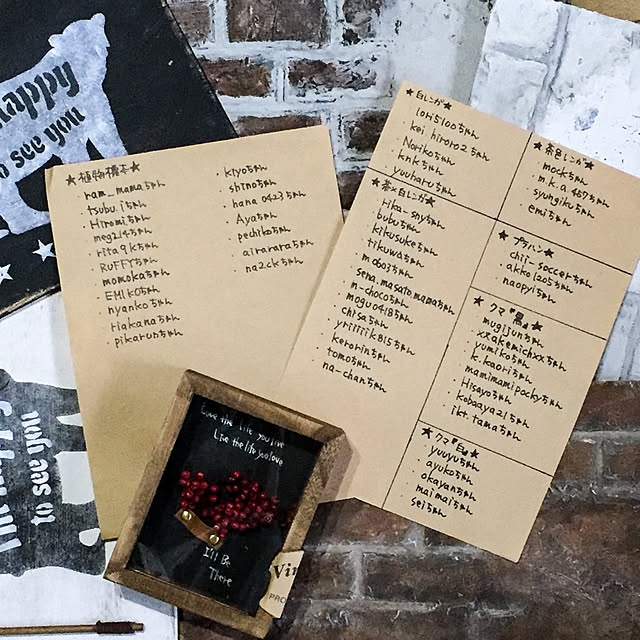 happy
to see you
★植物標本
・ram_mamaちゃん
・tsubu.iちゃん
・Hiromiちゃん
・meg214ちゃん
・rita9kちゃん
・RUFFYちゃん
・momokaちゃん
・EMIKOちゃん
・nyankoちゃん
・Hakanaちゃん
・pikarunちゃん
・kiyoちゃん
・shinoちゃん
・hana0423ちゃん
・Ayaちゃん
・pedikoちゃん
・airararaちゃん
・na2ckちゃん
★白レンガ★
・lori5100ちゃん
・kei hiro02ちゃん
・Norikoちゃん
・knkちゃん
・yuukaruちゃん
★茶×白レンガ★
・rika-snyちゃん
・bubuちゃん
・kikusukeちゃん
・tikuwaちゃん
・mob03ちゃん
・sena.masatomamaちゃん
・n-chocoちゃん
・mogu0418ちゃん
・chisaちゃん
・yriiiik815ちゃん
・kerorinちゃん
・tomoちゃん
・na-chanちゃん
★茶色レンガ★
・mocktちゃん
・m.k.a.967ちゃん
・syungikuちゃん
・emiちゃん
★プラハン★
・chii_soccerちゃん
・akko1205ちゃん
・naopyiちゃん
★クマ『黒』★
・mugijunちゃん
・xxakemichxxちゃん
・yumikoちゃん
・k.kaoriちゃん
・mamimamipockyちゃん
・Hisayoちゃん
・kobaaya21ちゃん
・ikt.tamaちゃん
★クマ『白』★
・yuuyuちゃん
・ayukoちゃん
・okayanちゃん
・maimaiちゃん
・seiちゃん
Love the life you live
Live the life you love
I'll Be
There
Vin
to see you